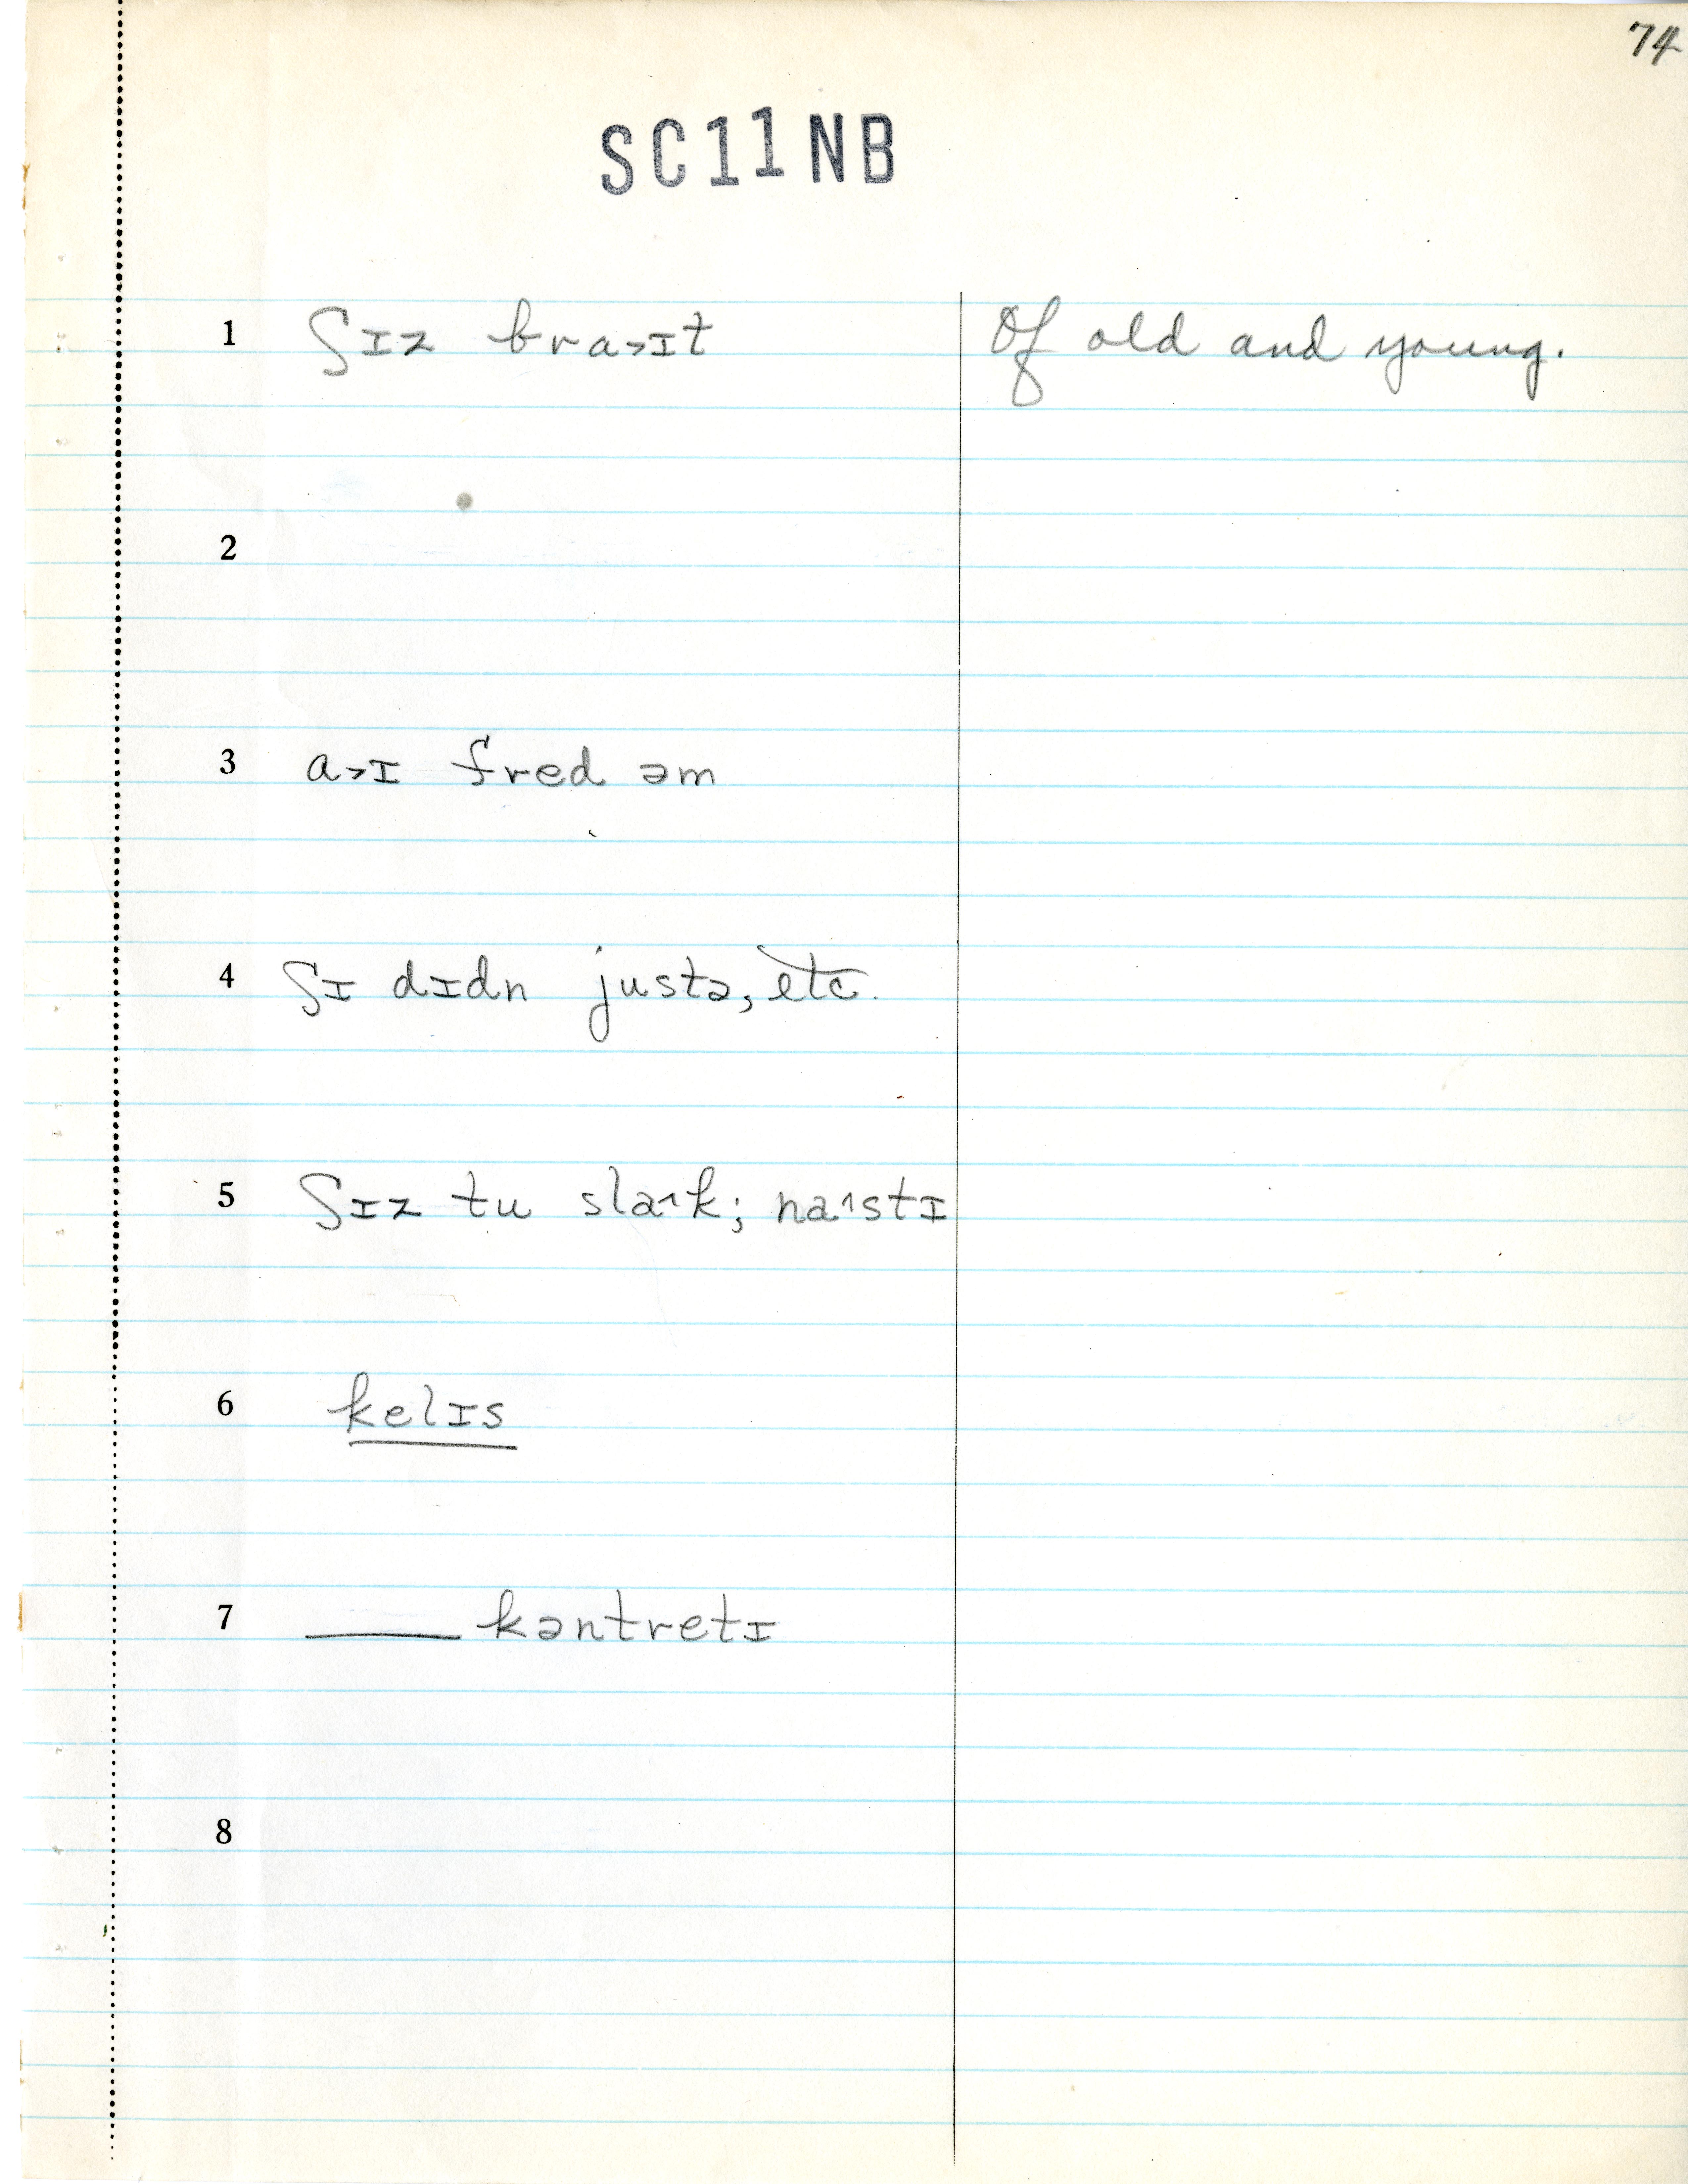 74
SC11NB
1 ʃɪz bra˃ɪt Of old and young.
2
3 a˃ɪ fred əm
4 ʃɪ dɪdn justə, etc.
5 ʃɪz tu sla˄k; na˄stɪ
6 kelɪs
7 ____ kəntretɪ
8